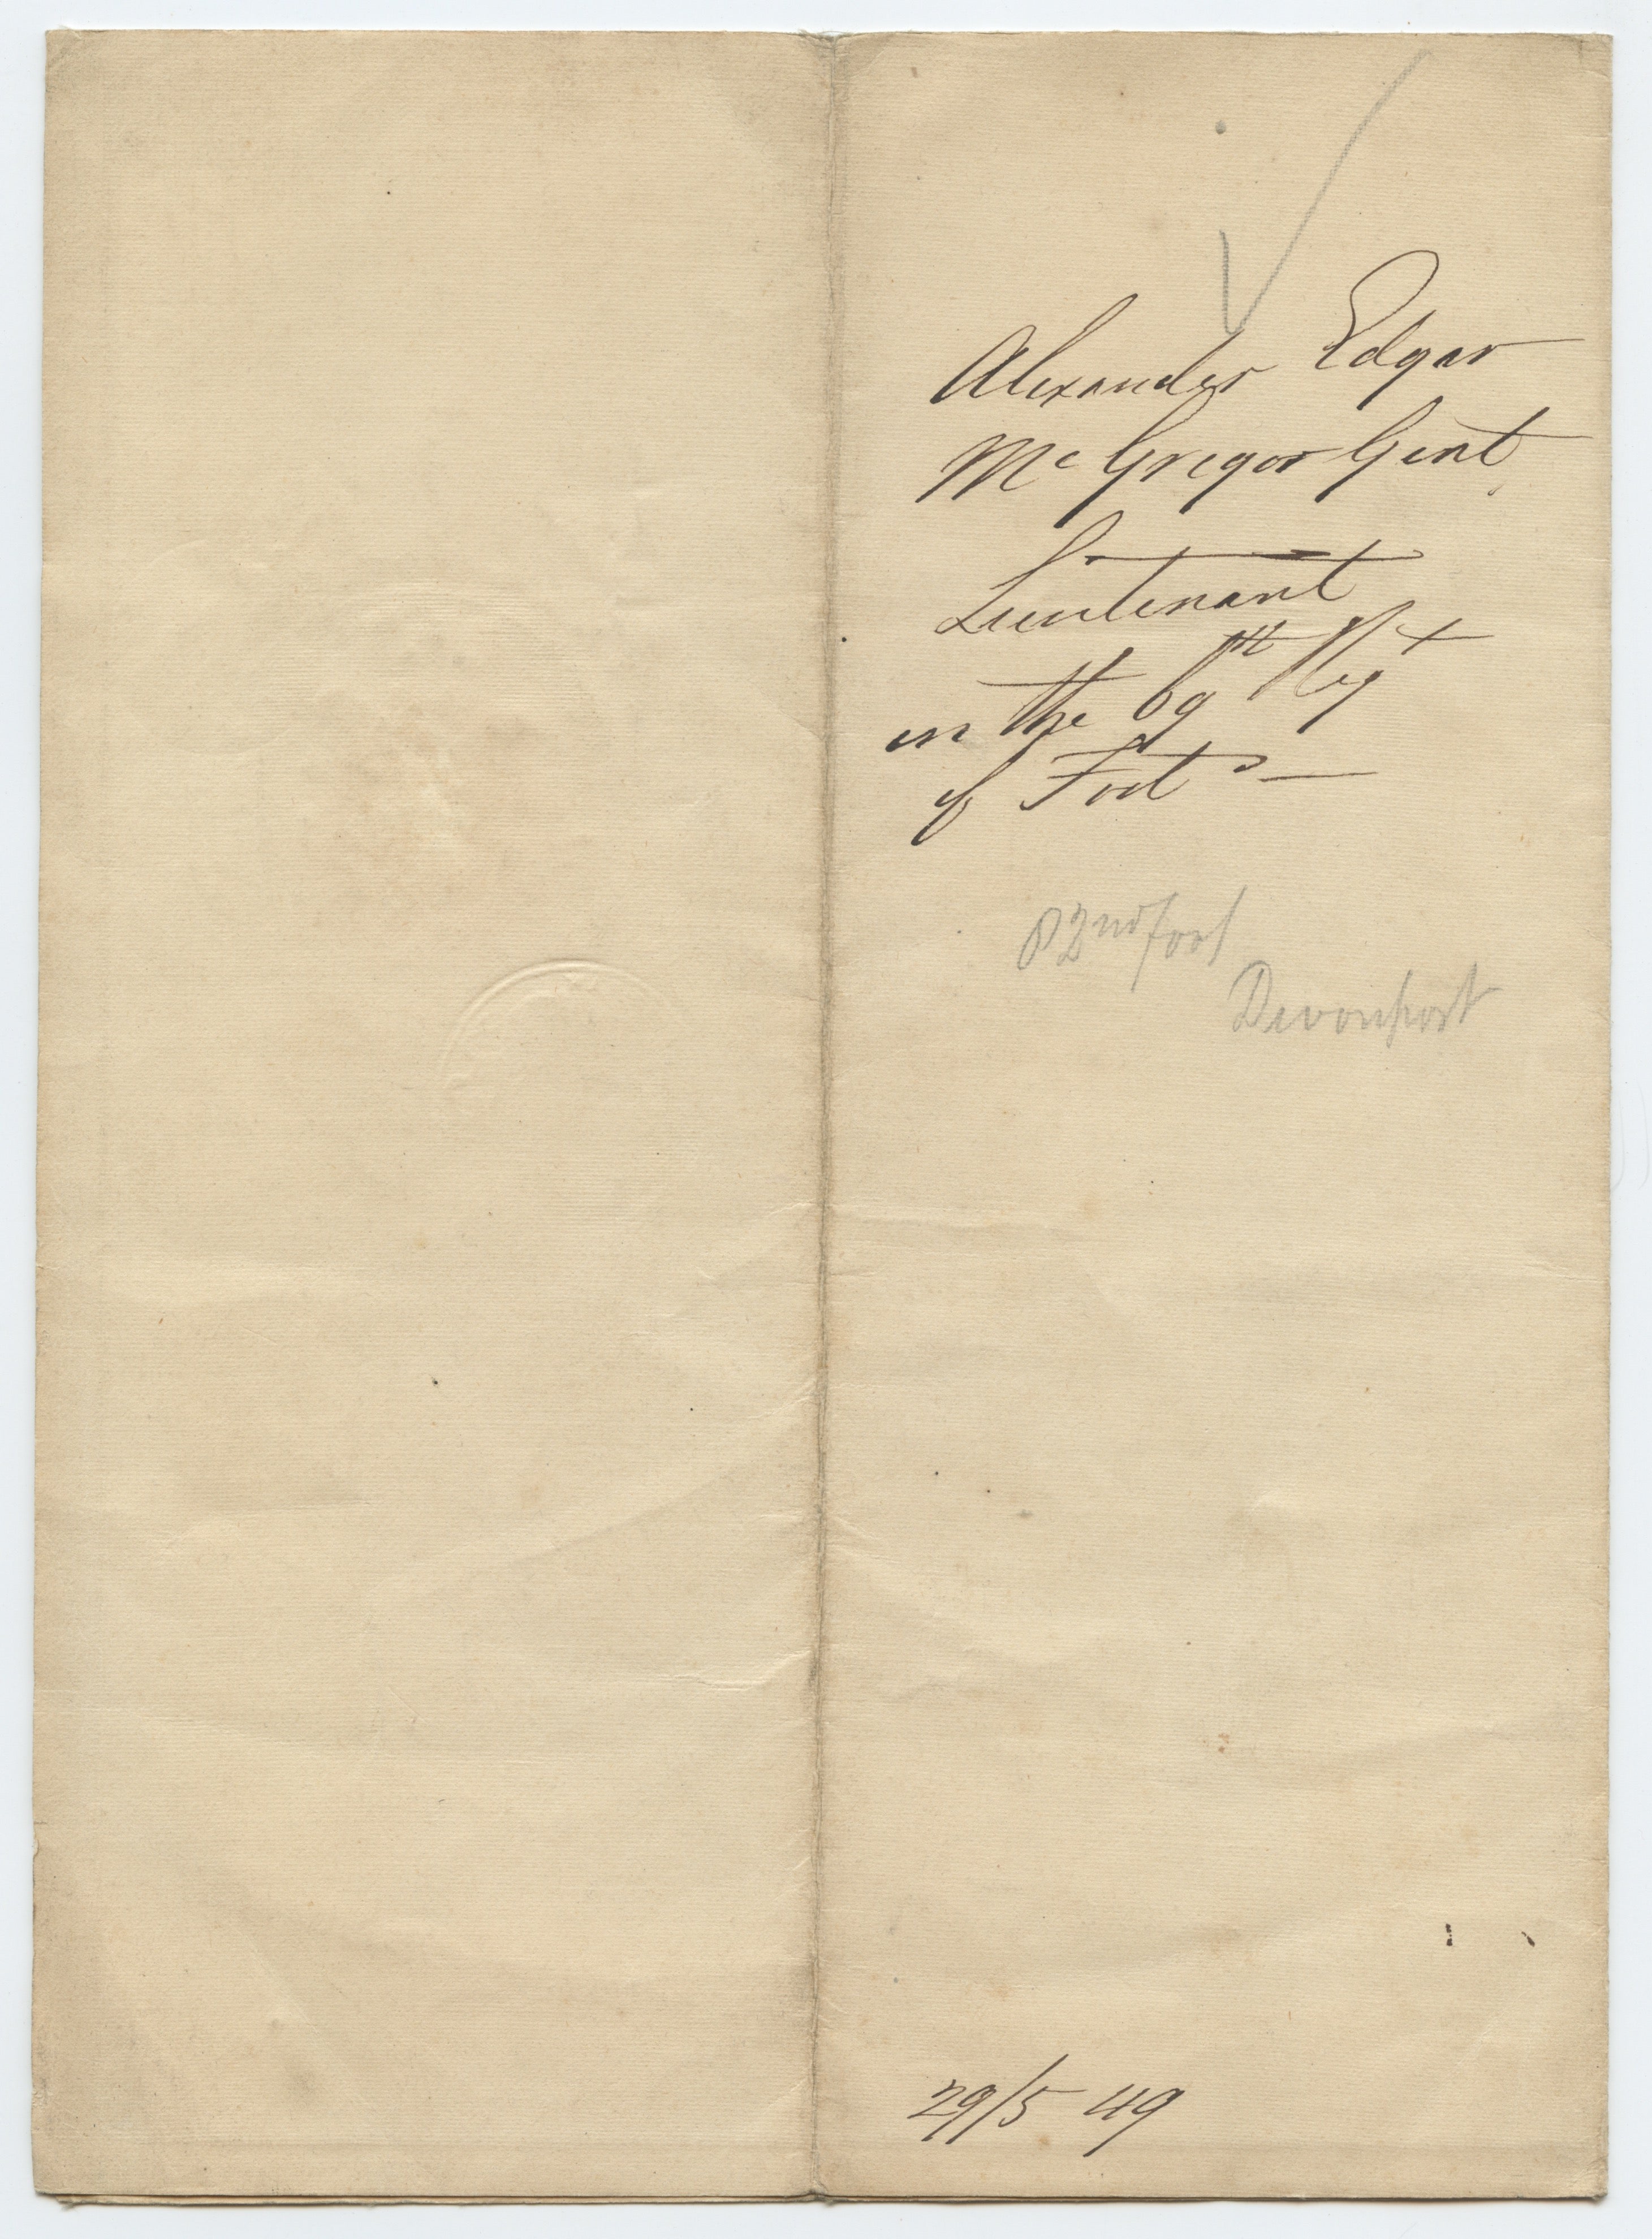 Alexander Edgar
McGregor Gent.
Lieutenant
in the 69th Regt
of Foot
82nd foot
Devonport
29/5 49